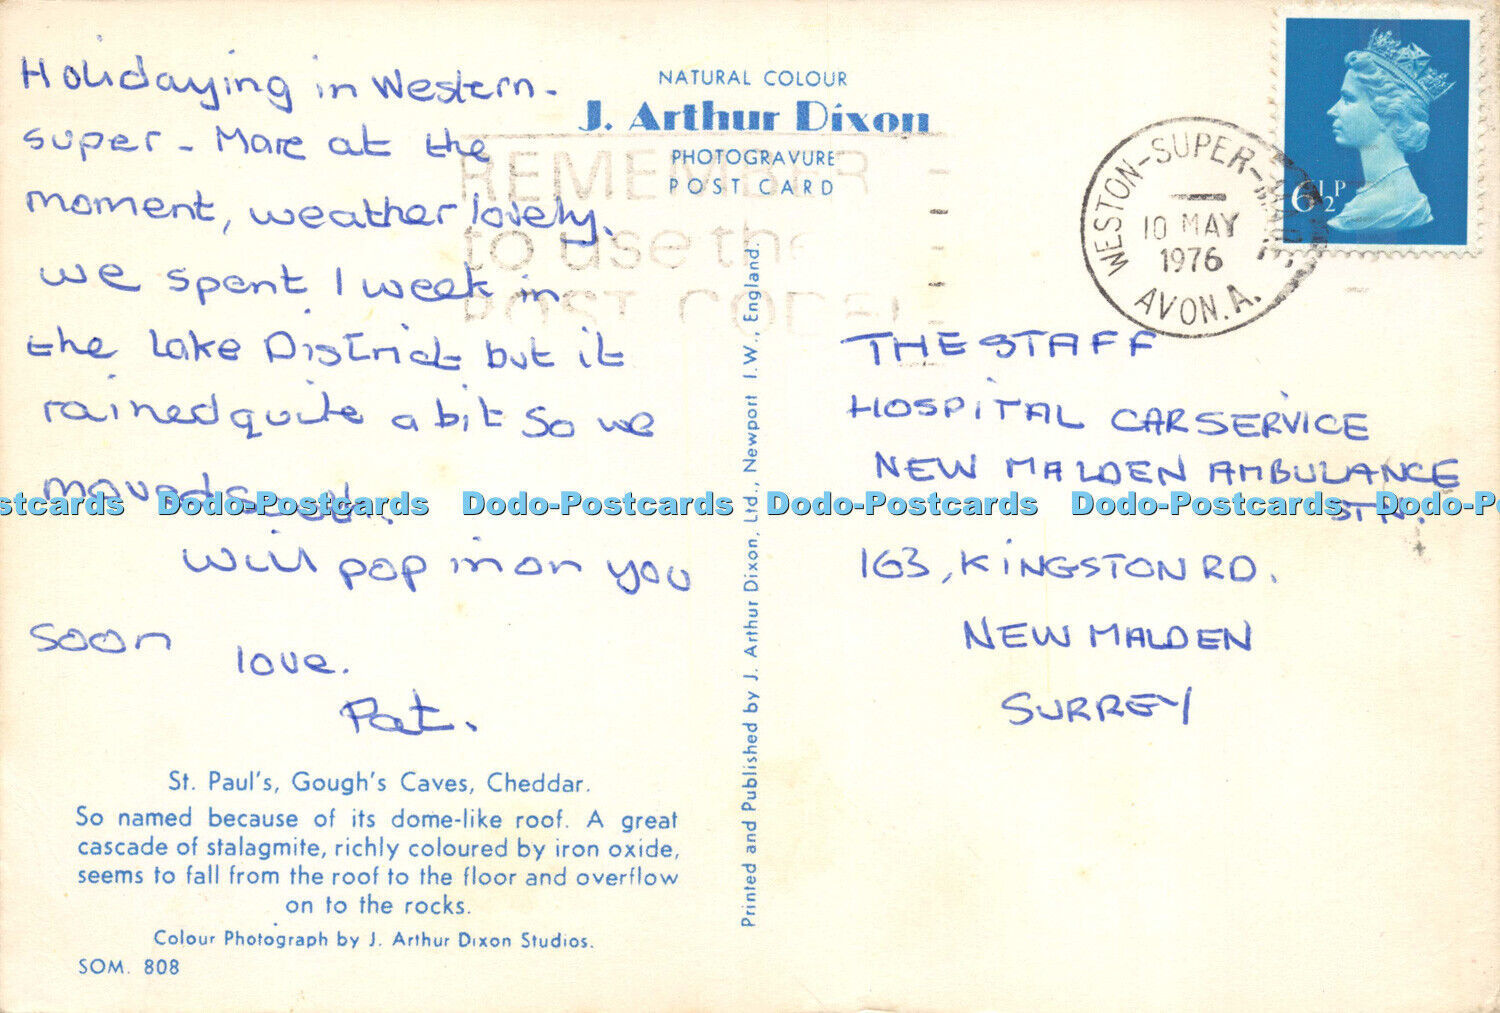 Holidaying in Western-
super - Mare at the
moment, weather lovely.
we spent 1 week in
the Lake District but it
rained quite a bit so we
moved
Will pop in on you
soon
love.
Pat.
St. Paul's, Gough's Caves, Cheddar.
So named because of its dome-like roof. A great
cascade of stalagmite, richly coloured by iron oxide,
seems to fall from the roof to the floor and overflow
on to the rocks.
Colour Photograph by J. Arthur Dixon Studios.
SOM. 808
NATURAL COLOUR
J. Arthur Dixon
PHOTOGRAVURE
POST CARD
REMEMBER
to use the
POST CODE
Printed and Published by J. Arthur Dixon, Ltd., Newport I.W., England.
WESTON-SUPER-MARE
10 MAY
1976
AVON.A.
6½P
THE STAFF
HOSPITAL CAR SERVICE
NEW MALDEN AMBULANCE
STN.
163, KINGSTON RD.
NEW MALDEN
SURREY
Dodo-Postcards Dodo-Postcards Dodo-Postcards Dodo-Postcards